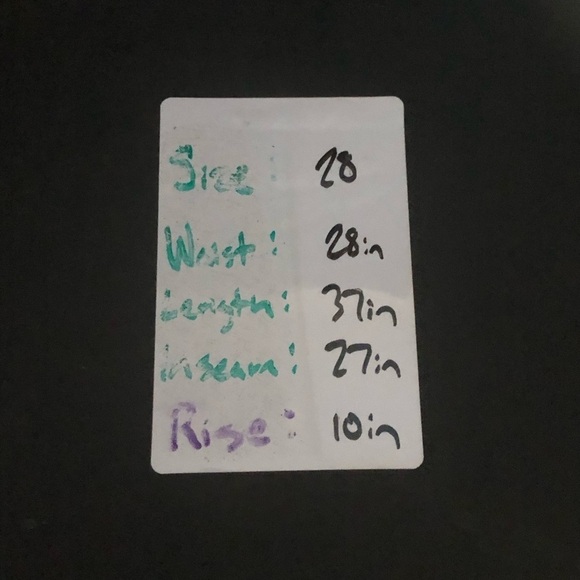 Size: 28
Waist: 28in
Length: 37in
inseam: 27in
Rise: 10in